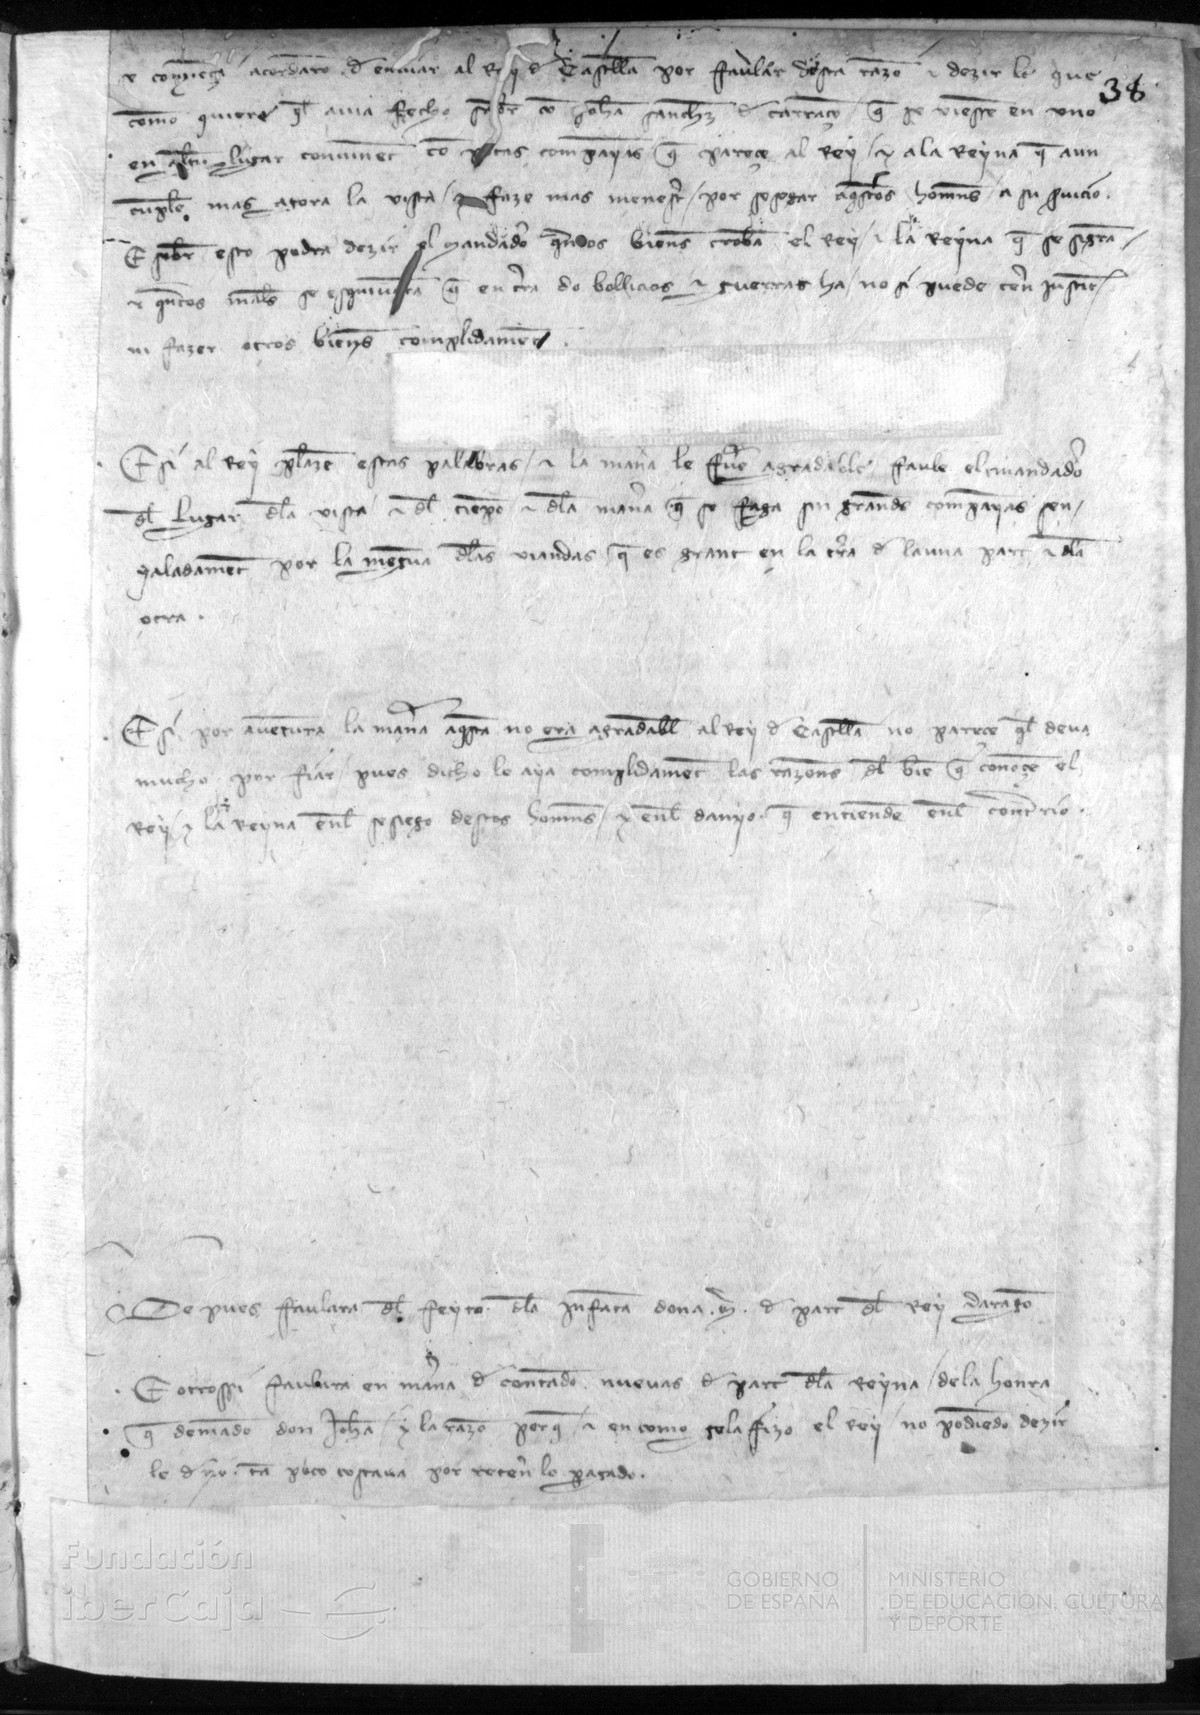 38
e comiença acordaro d enuiar al Rey d Castiella por faular desta razo e dezir le que
como quiere ql auia fecho sobr co Joha Sanchz d Carraço q se uiesse en uno
en algun lugar conuinent co pocas companyas q parece al Rey / e a la Reyna q aun
cumple mas agora la vista / e faze mas menestr / por sosegar aqstos homns a su seruicio.
E sobr esto podra dezir el mandadero quantos biens troba el Rey e la Reyna q se sigra /
e quntos mals se esquiuara q en tra do bollicios e guerras ha / no si puede tenr justic /
ni fazer otros biens complidament.
E si al Rey plaze estas palabras / e la mana le fue agradable faule el mandadero
dl lugar dla vista e dl tiempo e dla mana q se faga sin grands companyas sen /
yaladament por la mengua dlas viandas q es grant en la tra d launa part e dla
otra.
E si por auentura la mana aqsta no era agradabll al Rey d Castiella no parece ql deua
mucho por fiar / pues dicho le aya complidament las razons dl bie q conoce el
Rey / e la Reyna enl sosiego destos homns / e enl danyo q entiende enl contrario.
Depues faulara dl feyto dla Infanta dona .M. d part dl Rey darago
E otrossi faulara en mana d contado nueuas d part dla Reyna / de la honra
q demando don Joha / e la razo porq / e en como gela fizo el Rey / no podiedo dezir
le d no. ta poco costaua por retenr lo pagado.
Fundación
iberCaja
GOBIERNO
DE ESPAÑA
MINISTERIO
DE EDUCACIÓN, CULTURA
Y DEPORTE